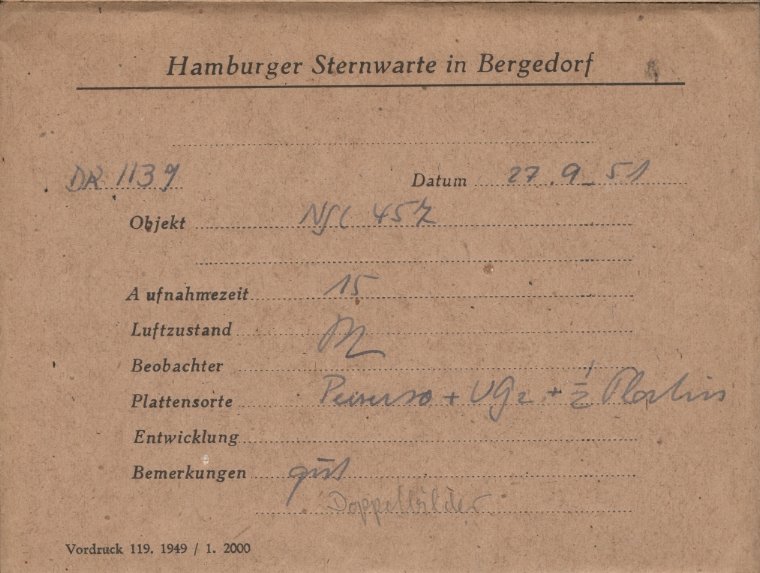 Hamburger Sternwarte in Bergedorf
DR 1139 Datum 27.9.51
Objekt NGC 457
Aufnahmezeit 15
Luftzustand
Beobachter
Plattensorte + UG2 + 1/2
Entwicklung
Bemerkungen gut
Doppelbilder
Vordruck 119. 1949 / 1. 2000